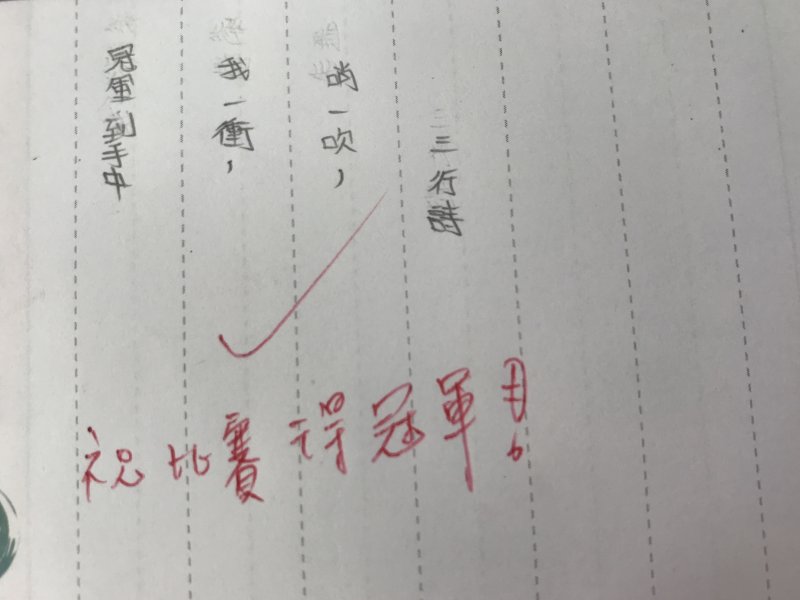 三行詩
哨一吹，
我一衝，
冠軍到手中
祝比賽得冠軍！